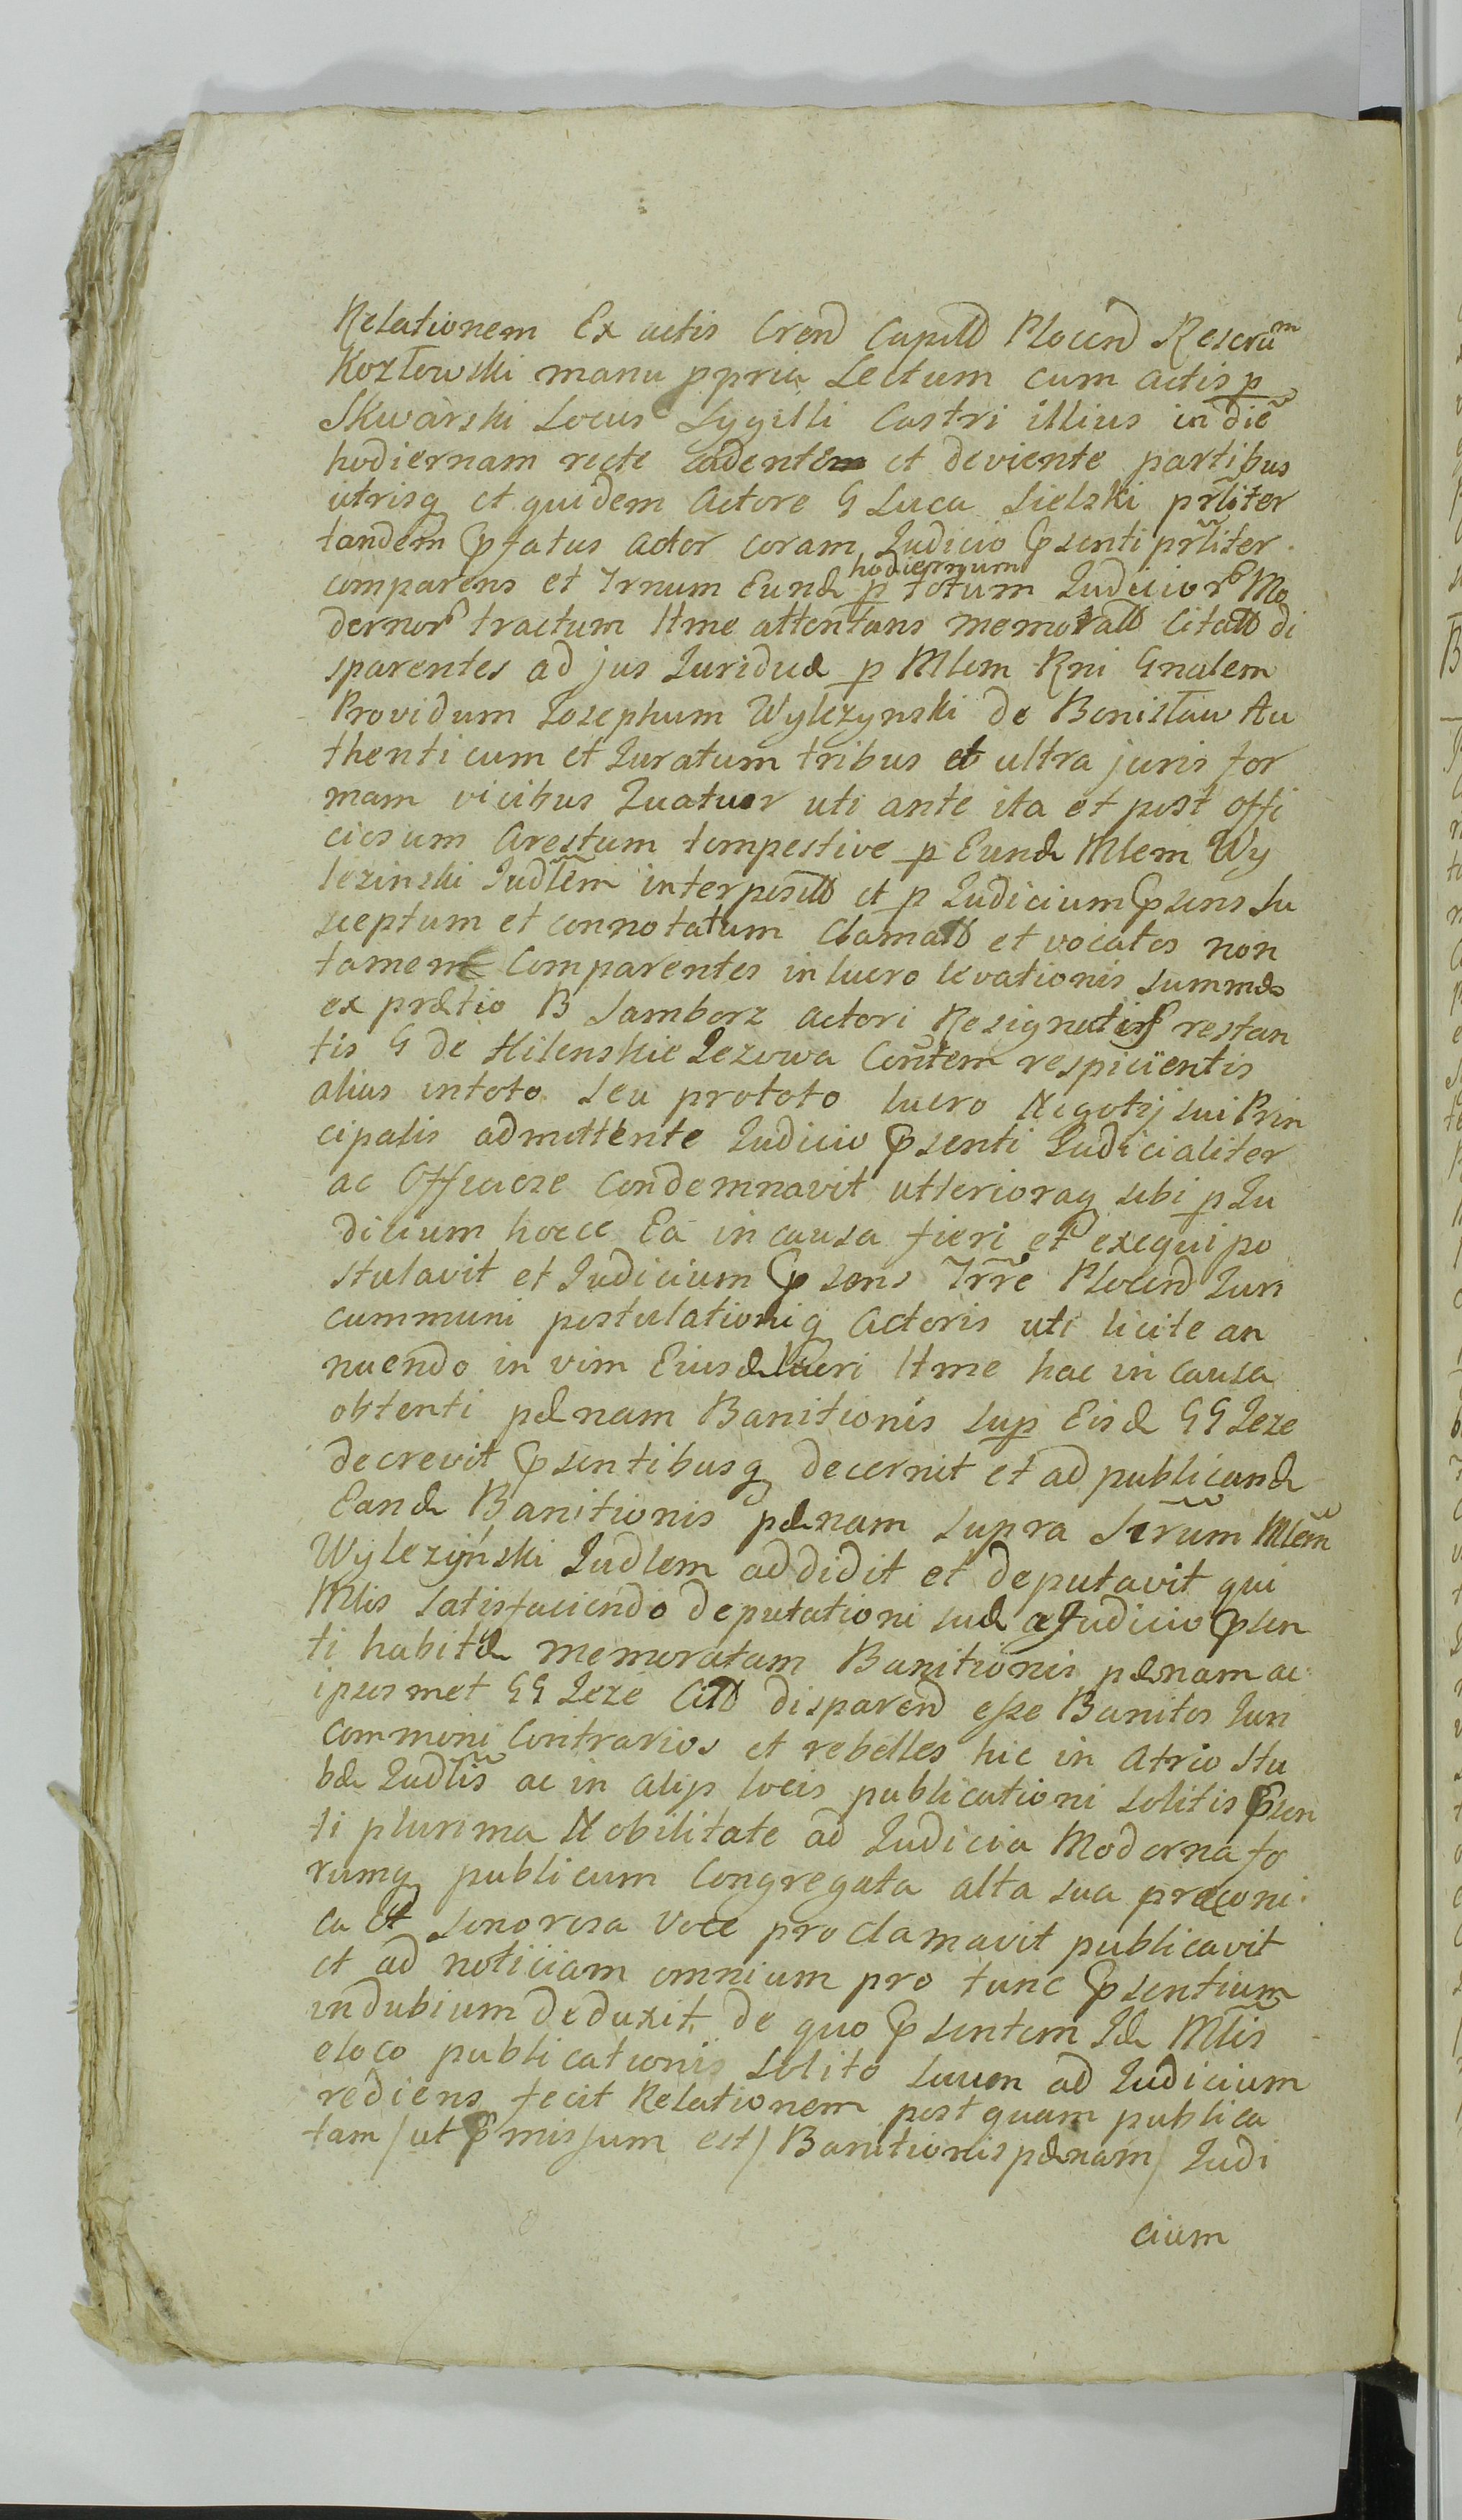 Relationem Ex actis Crend Capitt Plocen Rescrūm
Kozłowski manu ppria Lectum cum actis p
Skwarski Locus Sygilli Castri illius in diē
hodiernam recte cadentem et deviente partibus
utrisq et quidem Actore G Luca Sielski prliter
tandem Prfatus Actor coram Judicio Prsenti prliter
comparens et Trnum Eund p totum hodiernum Judicior Mo
dernor tractum ltme attentans memoratt Citatt di
sparentes ad jus Juridice p Mlem Rni Gnalem
Providum Josephum Wylezynski de Bonisław Au
thenticum et Juratum tribus et ultra juris for
mam vicibus Quatuor uti ante ita et post offi
ciosum Arestum tempestive p Eund Mlem Wy
lezinski Judlem interpositt et p Judicium Prsens su
sceptum et connotatum Clamatt et vocatos non
tamen Comparentes in lucro levationis summæ
ex prætio B Samborz actori Resignator restan
tis G de Hilenskie Jezowa Contem respicientis
alias in toto seu pro toto lucro Negotij sui Prin
cipalis admittente Judicio Prsenti Judicialiter
ac Officiose Condemnavit ulterioraq sibi p Ju
dicium hocce Ea in causa fieri et exequi po
stulavit et Judicium Prsens Trre Plocen Juri
cummuni postulationiq Actoris uti licite an
nuendo in vim Eiusd lucri ltme hac in causa
obtenti pænam Banitionis sup Eisd GG Jeze
decrevit Prsentibusq decernit et ad publicand
Eand Banitionis pænam supra Scrum Mlem
Wylezyński Judlem addidit et deputavit qui
Mlis satisfaciendo deputationi suæ a Judicio Prsen
ti habitæ memoratam Banitionis pænam ac
ipsosmet GG Jeze Citt disparend esse Banitos Juri
commoni Contrarios et rebelles hic in Atrio Stu
bæ Judlis ac in alijs locis publicationi solitis Prsen
ti plurima Nobilitate ad Judicia Moderna fo
rumq publicum Congregata alta sua præconi
ca et sonorosa Voce proclamavit publicavit
et ad noticiam omnium pro tunc Prsentium
indubium deduxit de quo Prsentem Id Mlis
eloco publicationis solito suum ad Judicium
rediens fecit Relationem post quam publica
tam / ut Prmissum est / Banitionis pænam / Judi
cium